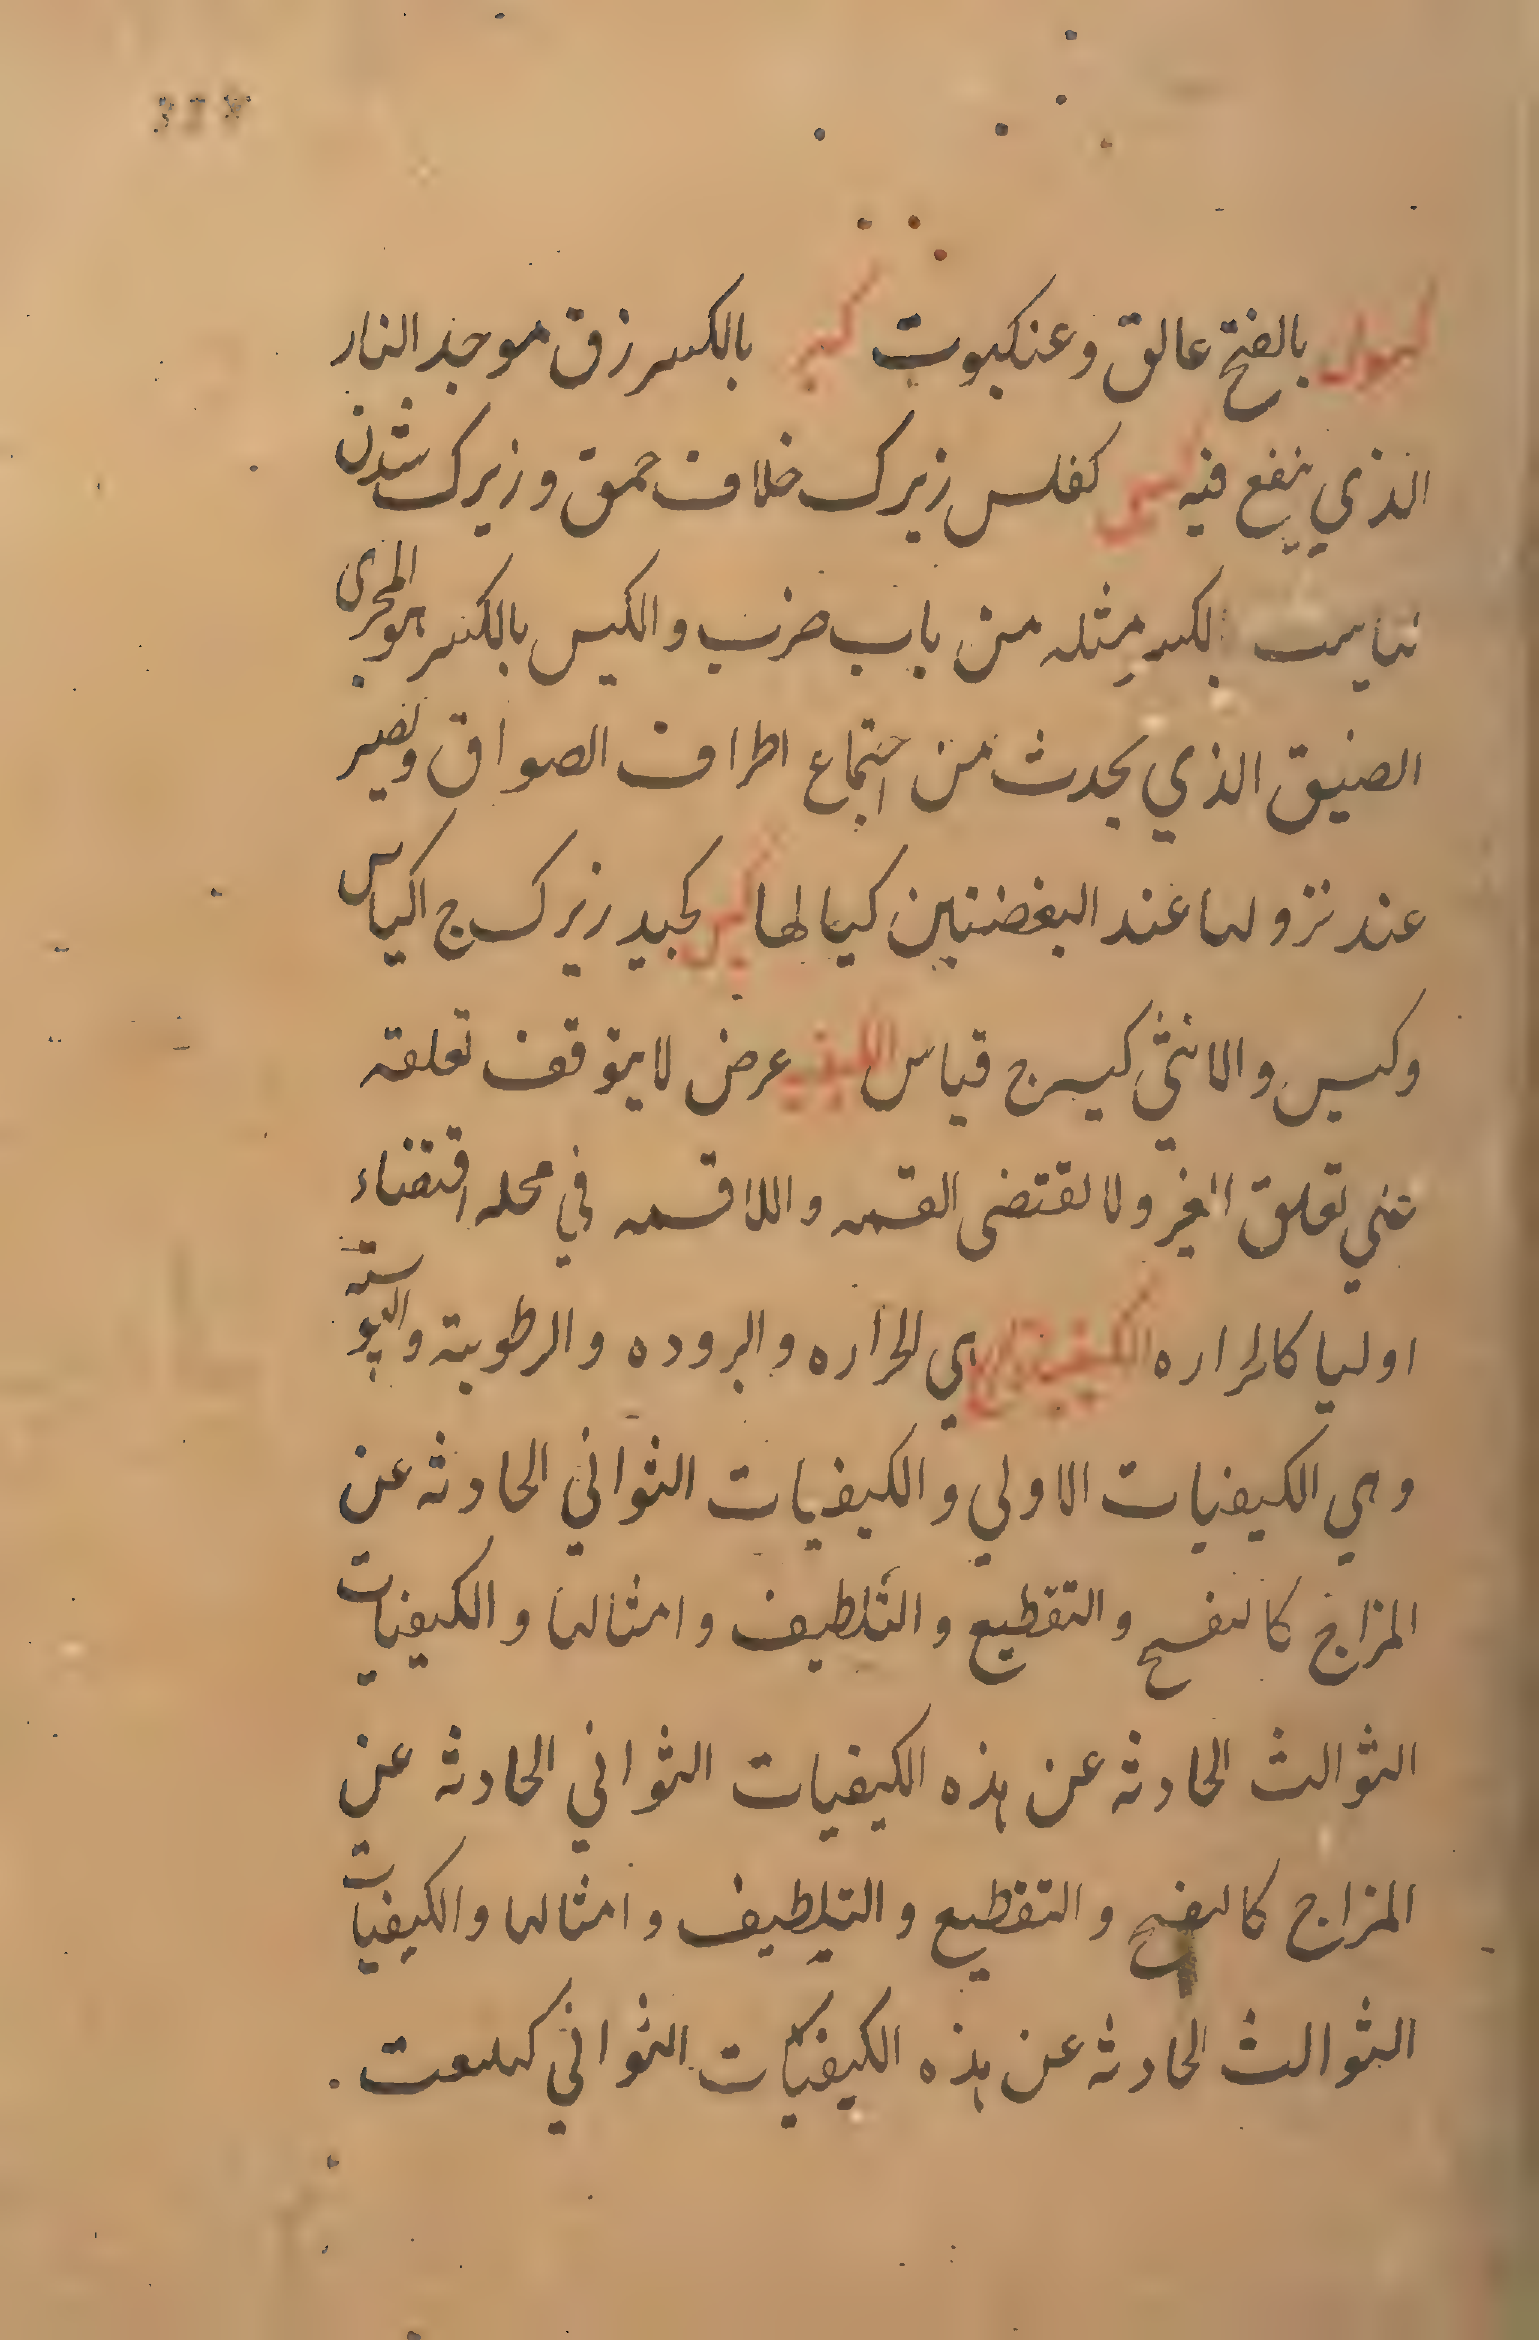 كهول بالفتح عالق وعنكبوت كير بالكسر زق موجد النار
الذي ينفع فيه كيس كفلس زيرك خلاف حمق وزيرك شدن
بالكسر مثله من باب ضرب والكيس بالكسر هو المجرى
الضيق الذي يحدث من اجتماع اطراف الصواق ويصير
عند نزولها عند البغضنين كيالها كيس كجيد زيرك ج اكياس
وكيس والانثى كيس ج قياس الكيف عرض لا يتوقف تعلقه
على تعلق الغير ولا يقتضى القسمه واللاقسمه في محله اقتضاء
اوليا كالحراره الكيفية هي الحراره والبروده والرطوبة واليبوسته
وهي الكيفيات الاولي والكيفيات الثواني الحادثه عن
المزاج كالنضج والتقطيع والتلطيف وامثالها والكيفيات
الثوالث الحادثه عن هذه الكيفيات الثواني الحادثه عن
المزاج كالنضج والتقطيع والتلطيف وامثالها والكيفيات
الثوالث الحادثه عن هذه الكيفيات الثواني